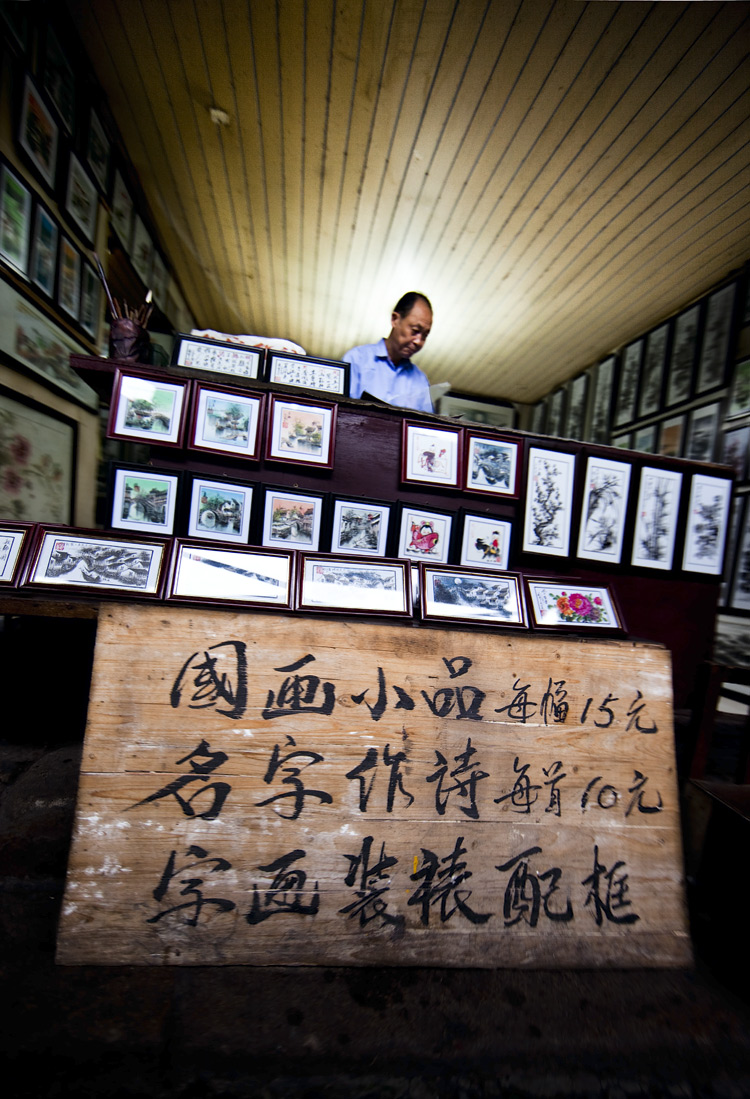 國画小品 每幅15元
名字作诗 每首10元
字画装裱配框